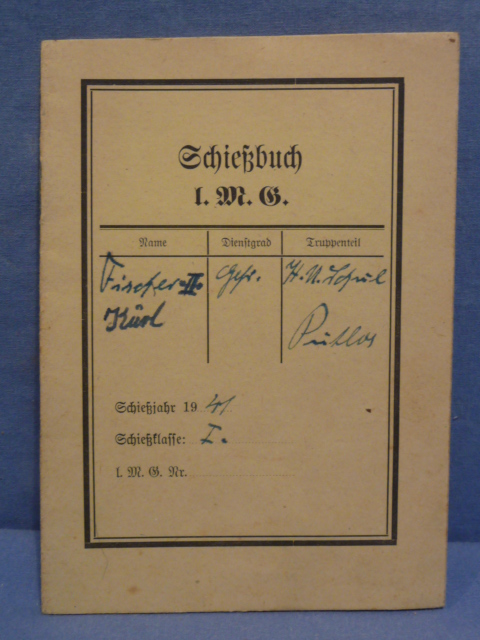 Schießbuch
l. M. G.
Name Dienstgrad Truppenteil
Fischer II. Gefr. H. U. Schul
Kurl Putlos
Schießjahr 19 41
Schießklasse: I.
l. M. G. Nr.